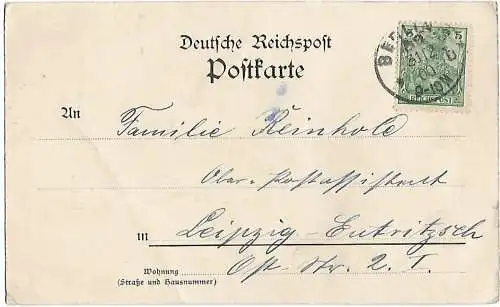 Deutsche Reichspost
Postkarte
5 5
BERLIN
12
00
9-10N
REICHSPOST
An Familie Reinhold
Ober-Postassistent
in Leipzig-Eutritzsch
Wohnung
(Straße und Hausnummer)
Ost Str. 2. I.